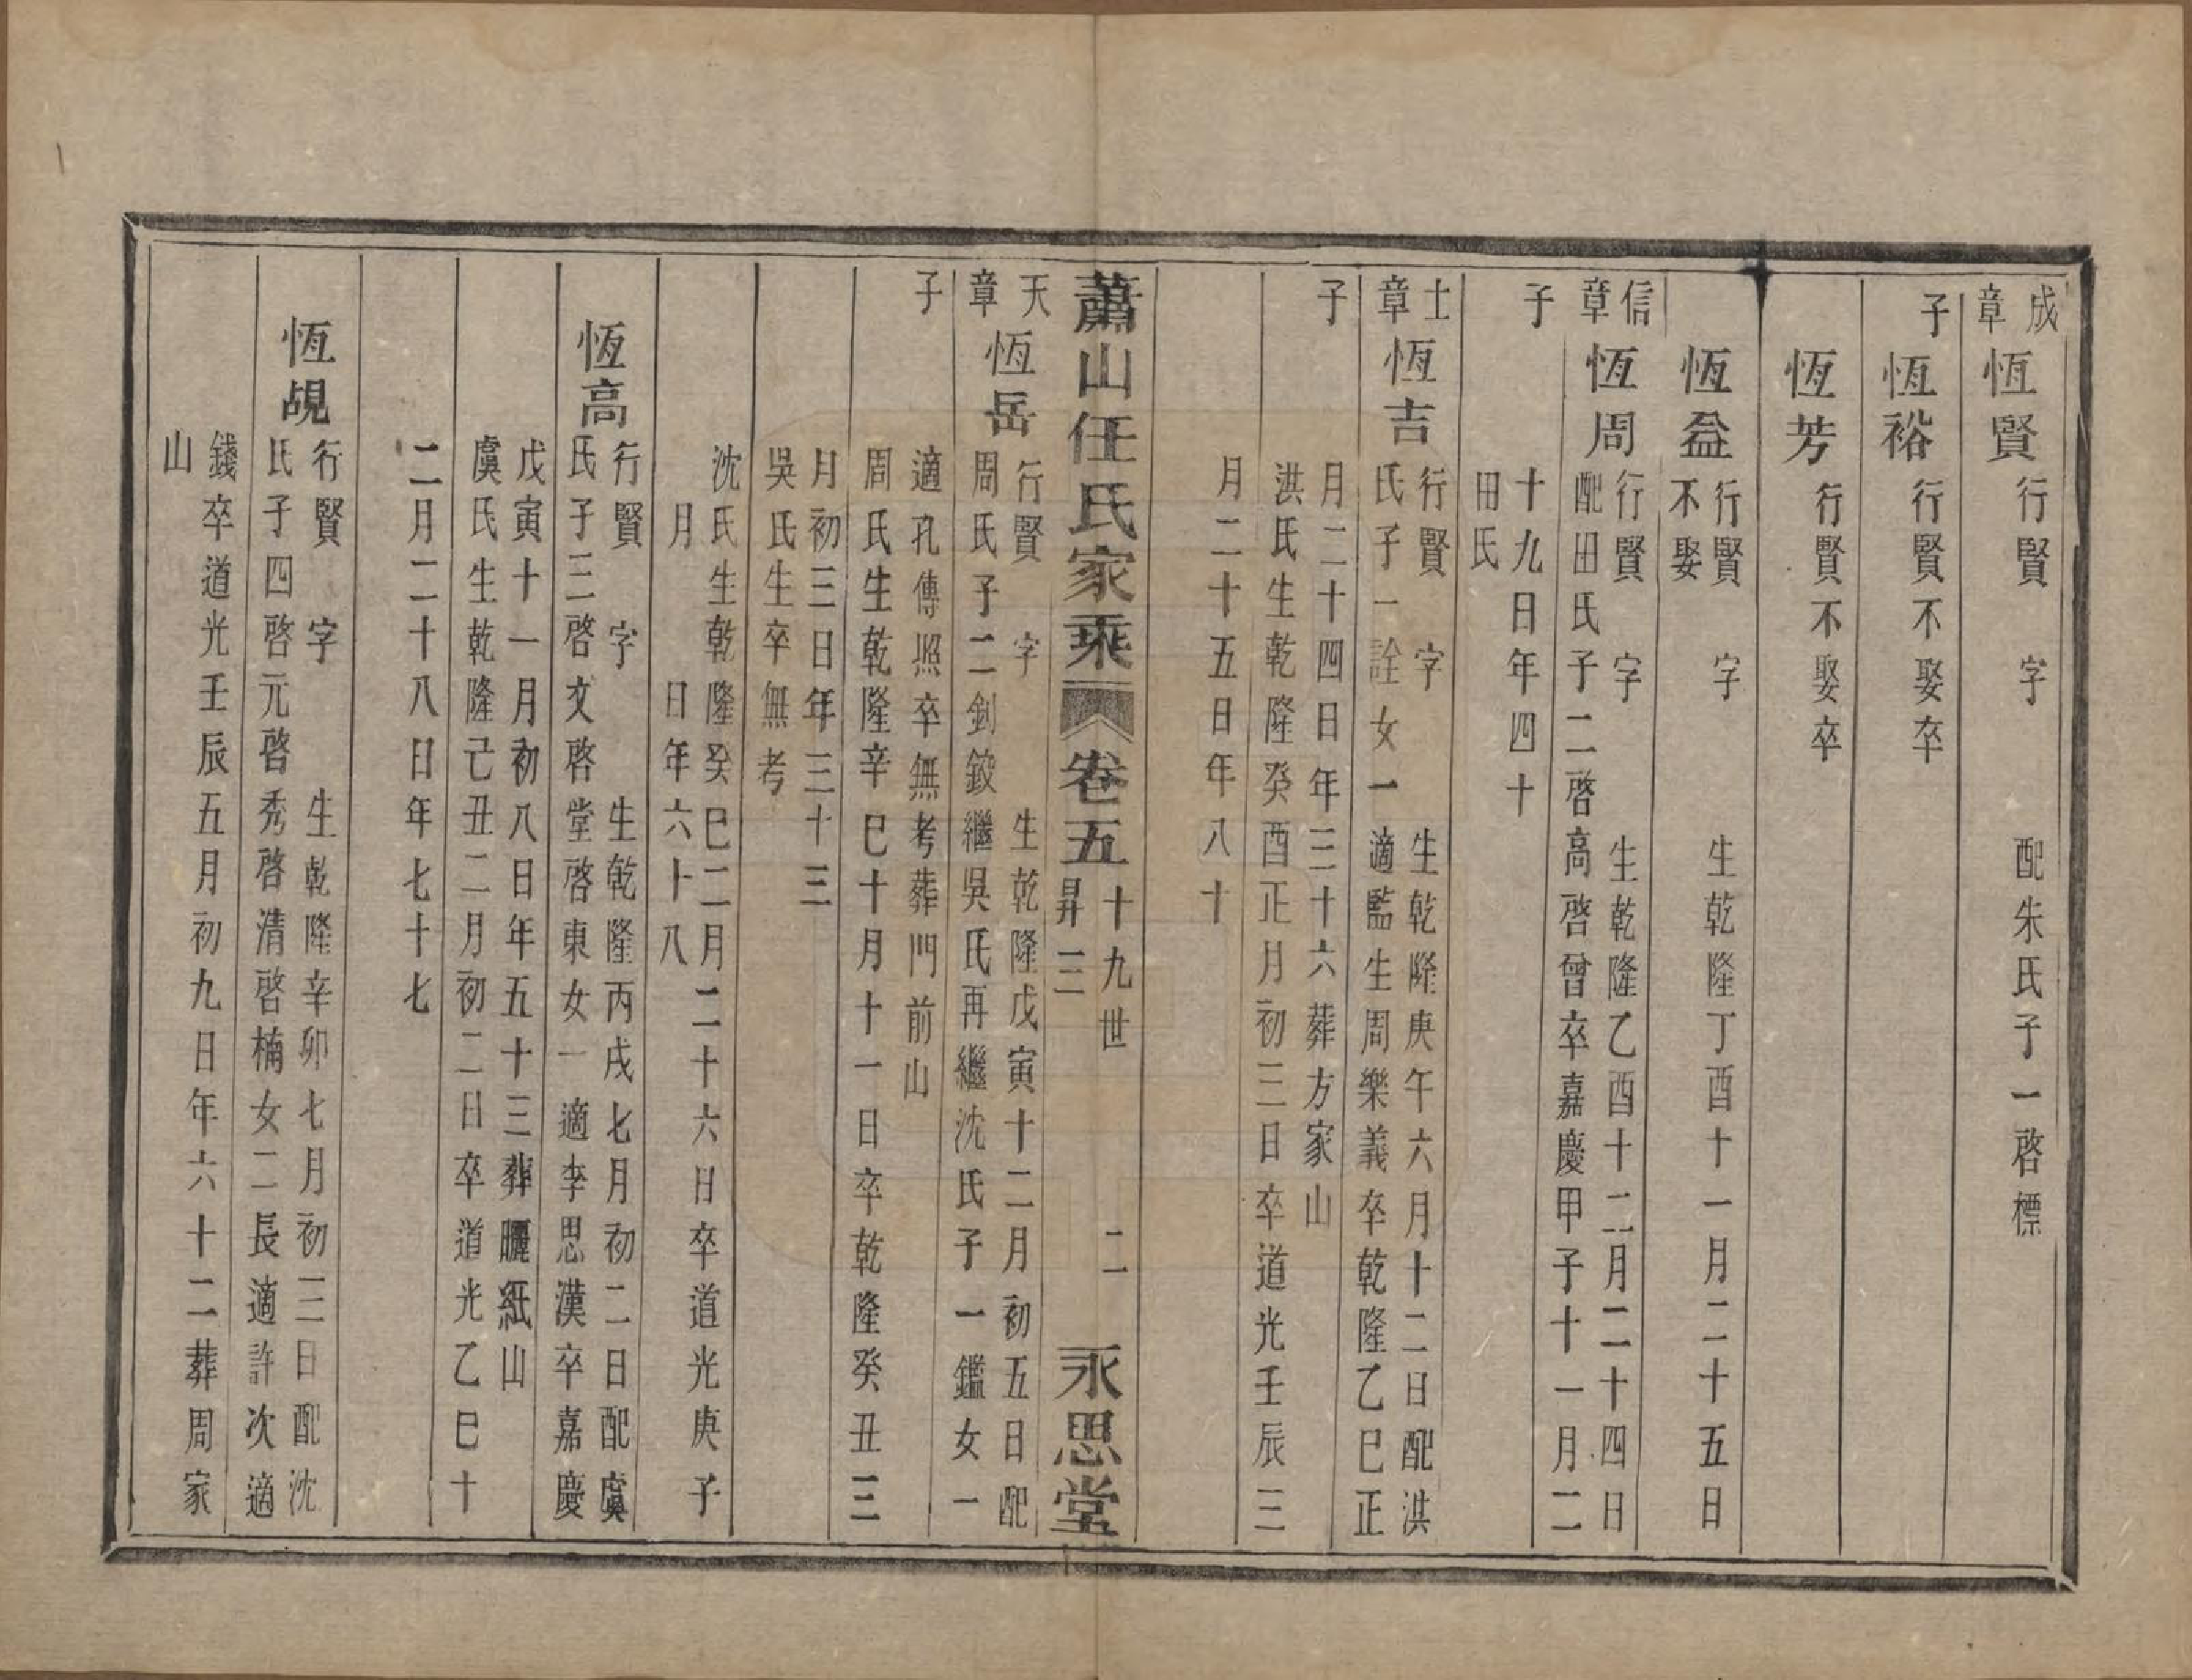 成章子
恆賢 行賢 字 配朱氏子一啓標
恆裕 行賢不娶卒
恆芳 行賢不娶卒
恆益 行賢 字 生乾隆丁酉十一月二十五日
不娶
信章子
恆周 行賢 字 生乾隆乙酉十二月二十四日
配田氏子二啓高啓曾卒嘉慶甲子十一月二
十九日年四十
田氏
士章子
恆吉 行賢 字 生乾隆庚午六月十二日配洪
氏子一詮女一適監生周樂義卒乾隆乙巳正
月二十四日年三十六葬方家山
洪氏生乾隆癸酉正月初三日卒道光壬辰三
月二十五日年八十
蕭山任氏家乘 卷五 十九世 昇三 二 永思堂
天章子
恆岳 行賢 字 生乾隆戊寅十二月初五日配
周氏子二釗鈫繼吳氏再繼沈氏子一鑑女一
適孔傳照卒無考葬門前山
周氏生乾隆辛巳十月十一日卒乾隆癸丑三
月初三日年三十三
吳氏生卒無考
沈氏生乾隆癸巳二月二十六日卒道光庚子
月 日年六十八
恆高 行賢 字 生乾隆丙戌七月初二日配虞
氏子三啓文啓堂啓東女一適李思漢卒嘉慶
戊寅十一月初八日年五十三葬曬紙山
虞氏生乾隆己丑二月初二日卒道光乙巳十
二月二十八日年七十七
恆覘 行賢 字 生乾隆辛卯七月初三日配沈
氏子四啓元啓秀啓清啓楠女二長適許次適
錢卒道光壬辰五月初九日年六十二葬周家
山